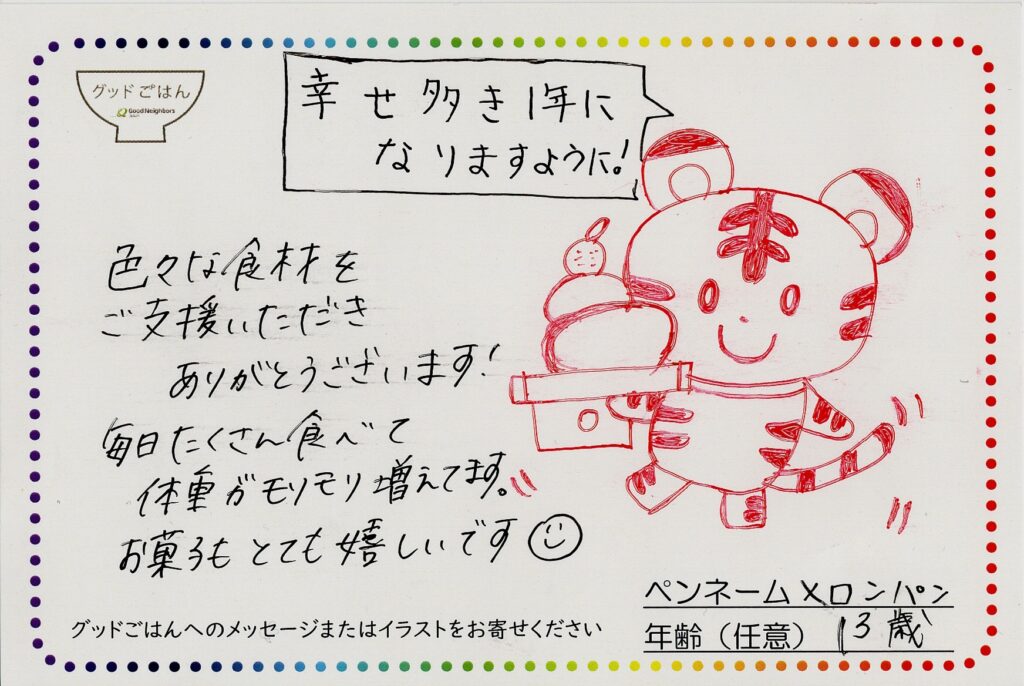 グッドごはん
GoodNeighbors
幸せ多き1年に
なりますように!
色々な食材を
ご支援いただき
ありがとうございます!
毎日たくさん食べて
体重がモリモリ増えてます。
お菓子もとても嬉しいです
ペンネーム メロンパン
年齢(任意) 13歳
グッドごはんへのメッセージまたはイラストをお寄せください